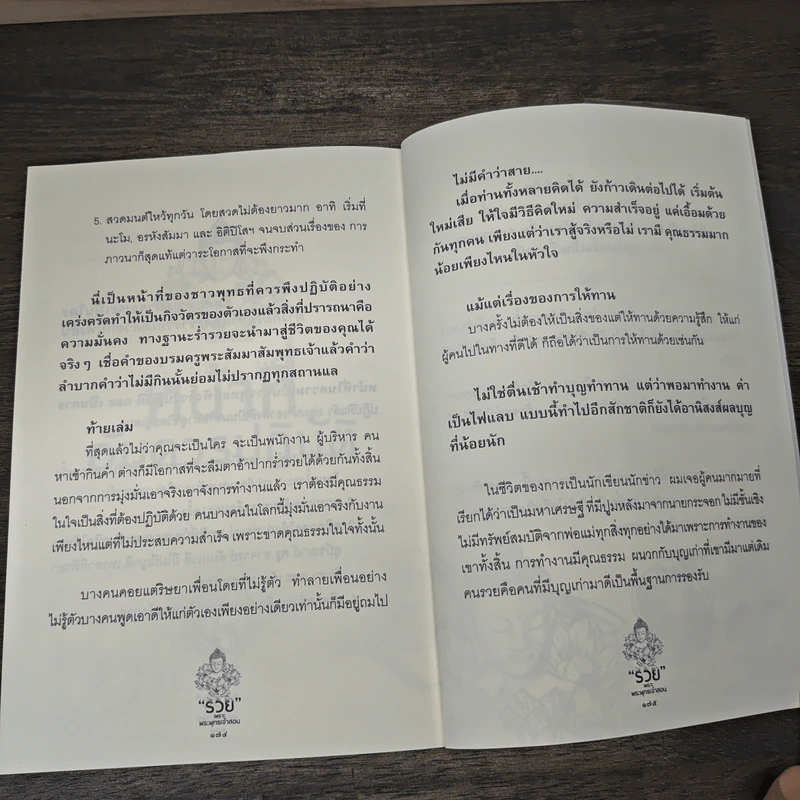 5. สวดมนต์ไหว้ทุกวัน โดยสวดไม่ต้องยาวมาก อาทิ เริ่มที่
นะโม, อรหังสัมมา และ อิติปิโสฯ จนจบส่วนเรื่องของ การ
ภาวนาก็สุดแท้แต่วาระโอกาสที่จะพึงกระทำ
นี่เป็นหน้าที่ของชาวพุทธที่ควรพึงปฏิบัติอย่าง
เคร่งครัดทำให้เป็นกิจวัตรของตัวเองแล้วสิ่งที่ปรารถนาคือ
ความมั่นคง ทางฐานะร่ำรวยจะนำมาสู่ชีวิตของคุณได้
จริงๆ เชื่อคำของบรมครูพระสัมมาสัมพุทธเจ้าแล้วคำว่า
ลำบากคำว่าไม่มีกินนั้นย่อมไม่ปรากฏทุกสถานแล
ท้ายเล่ม
ที่สุดแล้วไม่ว่าคุณจะเป็นใคร จะเป็นพนักงาน ผู้บริหาร คน
หาเช้ากินค่ำ ต่างก็มีโอกาสที่จะลืมตาอ้าปากร่ำรวยได้ด้วยกันทั้งสิ้น
นอกจากการมุ่งมั่นเอาจริงเอาจังการทำงานแล้ว เราต้องมีคุณธรรม
ในใจเป็นสิ่งที่ต้องปฏิบัติด้วย คนบางคนในโลกนี้มุ่งมั่นเอาจริงกับงาน
เพียงไหนแต่ที่ไม่ประสบความสำเร็จ เพราะขาดคุณธรรมในใจทั้งนั้น
บางคนคอยแต่ริษยาเพื่อนโดยที่ไม่รู้ตัว ทำลายเพื่อนอย่าง
ไม่รู้ตัวบางคนพูดเอาดีให้แก่ตัวเองเพียงอย่างเดียวเท่านั้นก็มีอยู่ถมไป
"รวย"
เพราะ
พระพุทธเจ้าสอน
๑๗๔
ไม่มีคำว่าสาย....
เมื่อท่านทั้งหลายคิดได้ ยังก้าวเดินต่อไปได้ เริ่มต้น
ใหม่เสีย ให้ใจมีวิธีคิดใหม่ ความสำเร็จอยู่ แค่เอื้อมด้วย
กันทุกคน เพียงแต่ว่าเราสู้จริงหรือไม่ เรามี คุณธรรมมาก
น้อยเพียงไหนในหัวใจ
แม้แต่เรื่องของการให้ทาน
บางครั้งไม่ต้องให้เป็นสิ่งของแต่ให้ทานด้วยความรู้สึก ให้แก่
ผู้คนไปในทางที่ดีได้ ก็ถือได้ว่าเป็นการให้ทานด้วยเช่นกัน
ไม่ใช่ตื่นเช้าทำบุญทำทาน แต่ว่าพอมาทำงาน ด่า
เป็นไฟแลบ แบบนี้ทำไปอีกสักชาติก็ยังได้อานิสงส์ผลบุญ
ที่น้อยนัก
ในชีวิตของการเป็นนักเขียนนักข่าว ผมเจอผู้คนมากมายที่
เรียกได้ว่าเป็นมหาเศรษฐี ที่มีปูมหลังมาจากนายกระจอก ไม่มีชั้นเชิง
ไม่มีทรัพย์สมบัติจากพ่อแม่ทุกสิ่งทุกอย่างได้มาเพราะการทำงานของ
เขาทั้งสิ้น การทำงานมีคุณธรรม ผนวกกับบุญเก่าที่เขามีมาแต่เดิม
คนรวยคือคนที่มีบุญเก่ามาดีเป็นพื้นฐานการรองรับ
"รวย"
เพราะ
พระพุทธเจ้าสอน
๑๗๕